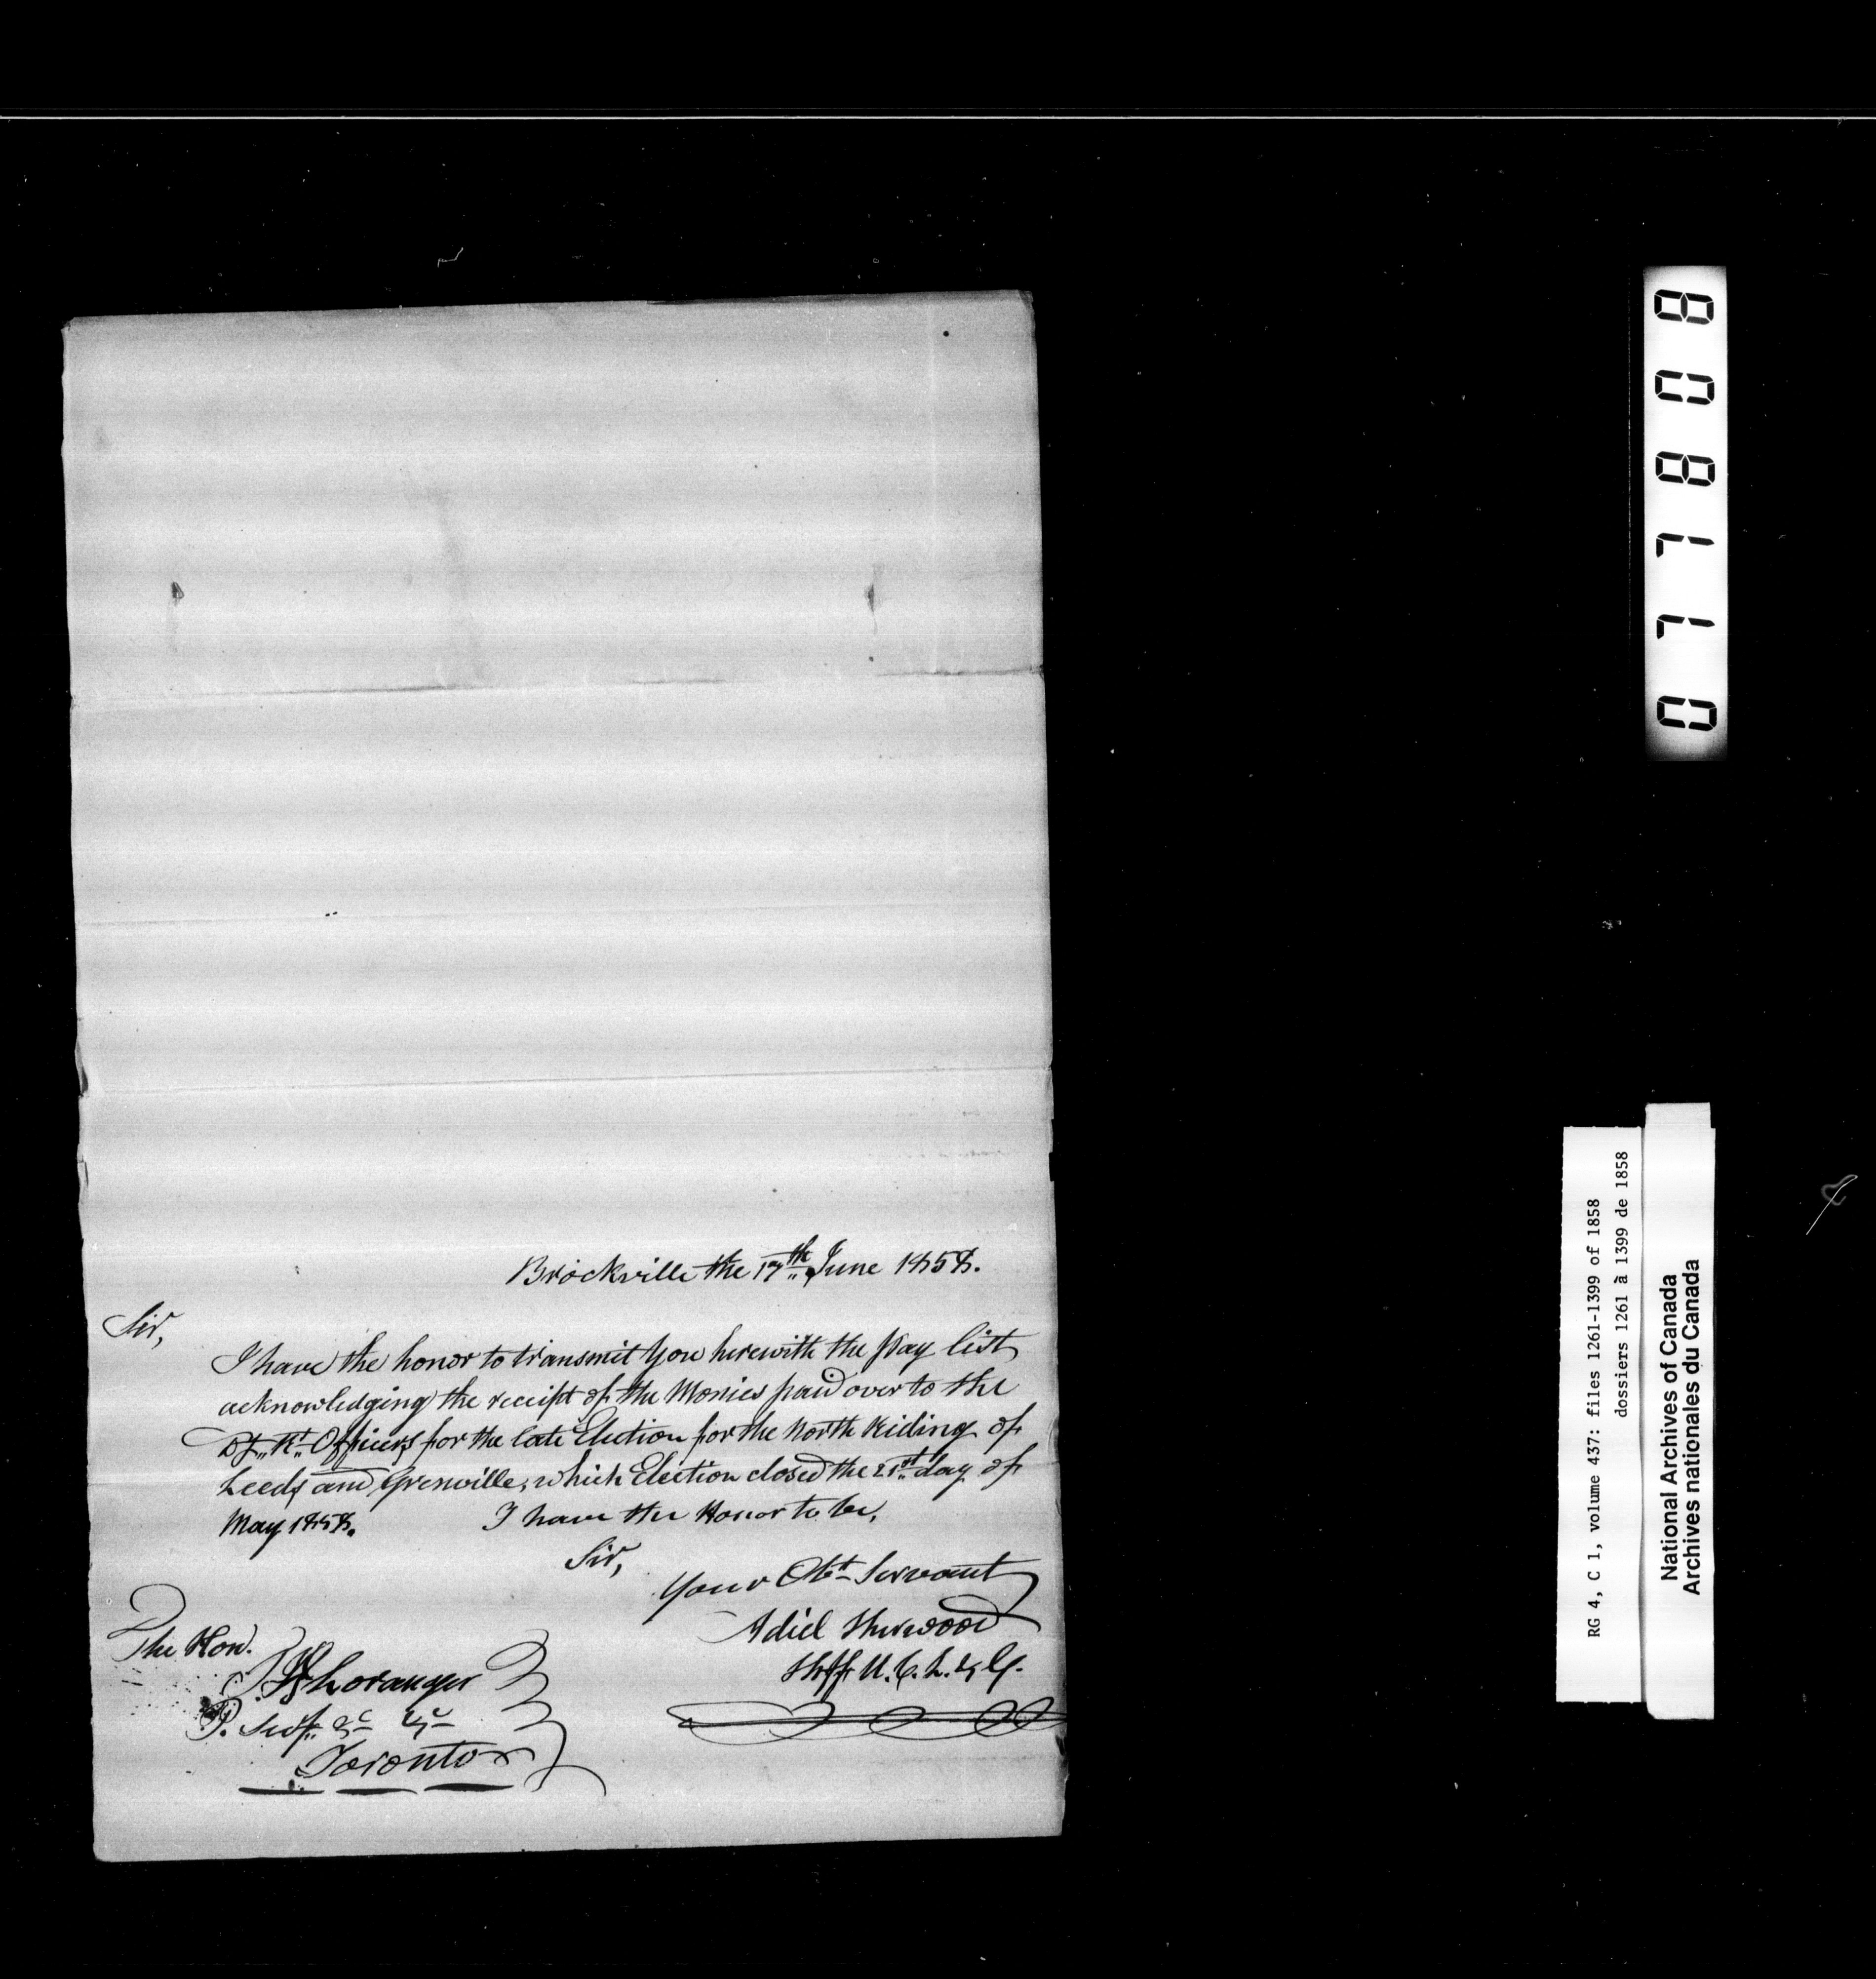 Brockville the 17th June 1858.
Sir,
I have the honor to transmit you herewith the Pay list
acknowledging the receipt of the Monies paid over to the
Dy. Rt. Officers for the late Election for the North Riding of
Leeds and Grenville, which Election closed the 21st day of
May 1858.
I have the Honor to be,
Sir,
Your Obt Servant
Adiel Sherwood
Shff U. C. L. & G.
The Hon.
Loranger
P. Secy &c &c
Toronto
077808
RG 4, C 1, volume 437: files 1261-1399 of 1858
dossiers 1261 à 1399 de 1858
National Archives of Canada
Archives nationales du Canada